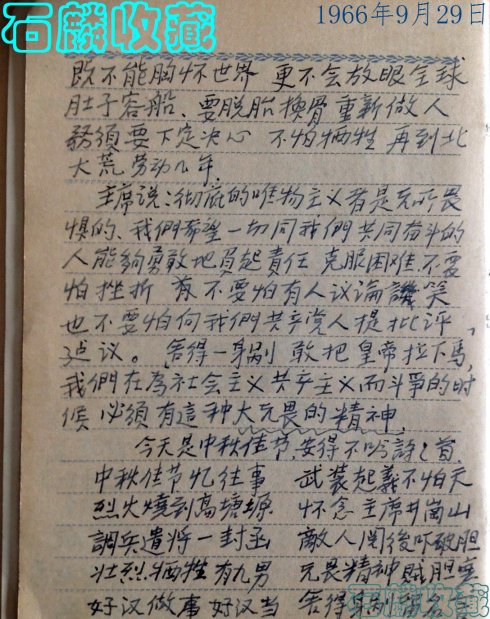 石麟收藏
1966年9月29日
既不能胸怀世界 更不会放眼全球
肚子容船、要脱胎換骨重新做人
務須要下定决心 不怕牺牲 再到北
大荒劳动几年.
主席说:彻底的唯物主义者是无所畏
惧的、我們希望一切同我們共同奋斗的
人能夠勇敢地負起責任 克服困难.不要
怕挫折 有不要怕有人议論譏笑
也不要怕向我們共产党人提批评,
建议。舍得一身剐 敢把皇帝拉下馬,
我們在為社会主义共产主义而斗爭的时
候 必須有這种大无畏的精神,
今天是中秋佳节,安得不吟詩一首
中秋佳节忆往事 武装起義不怕天
烈火燒到高塘塬 怀念主席井崗山
調兵遣将一封函 敵人閲後吓破胆
壮烈牺牲有九男 无畏精神贼胆
好汉做事好汉当 舍得身剐
石麟收藏